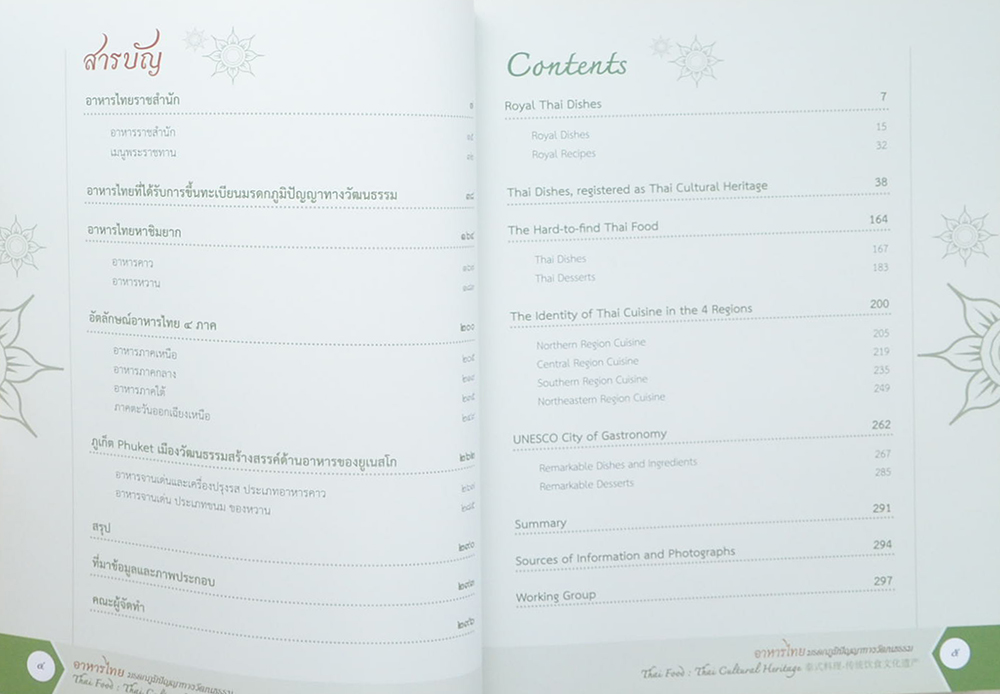 สารบัญ
อาหารไทยราชสำนัก
อาหารราชสำนัก
เมนูพระราชทาน
อาหารไทยที่ได้รับการขึ้นทะเบียนมรดกภูมิปัญญาทางวัฒนธรรม ๓๘
อาหารไทยหาชิมยาก ๑๖๔
อาหารคาว
อาหารหวาน
อัตลักษณ์อาหารไทย ๔ ภาค ๒๐๐
อาหารภาคเหนือ ๒๐๕
อาหารภาคกลาง ๒๑๙
อาหารภาคใต้ ๒๓๕
ภาคตะวันออกเฉียงเหนือ ๒๔๙
ภูเก็ต Phuket เมืองวัฒนธรรมสร้างสรรค์ด้านอาหารของยูเนสโก ๒๖๒
อาหารจานเด่นและเครื่องปรุงรส ประเภทอาหารคาว ๒๖๗
อาหารจานเด่น ประเภทขนม ของหวาน ๒๘๕
สรุป
ที่มาข้อมูลและภาพประกอบ
คณะผู้จัดทำ
๔
อาหารไทย มรดกภูมิปัญญาทางวัฒนธรรม
Thai Food : Thai
Contents
Royal Thai Dishes 7
Royal Dishes 15
Royal Recipes 32
Thai Dishes, registered as Thai Cultural Heritage 38
The Hard-to-find Thai Food 164
Thai Dishes 167
Thai Desserts 183
The Identity of Thai Cuisine in the 4 Regions 200
Northern Region Cuisine 205
Central Region Cuisine 219
Southern Region Cuisine 235
Northeastern Region Cuisine 249
UNESCO City of Gastronomy 262
Remarkable Dishes and Ingredients 267
Remarkable Desserts 285
Summary 291
Sources of Information and Photographs 294
Working Group 297
อาหารไทย มรดกภูมิปัญญาทางวัฒนธรรม
Thai Food : Thai Cultural Heritage 泰式料理-传统饮食文化遗产
๕